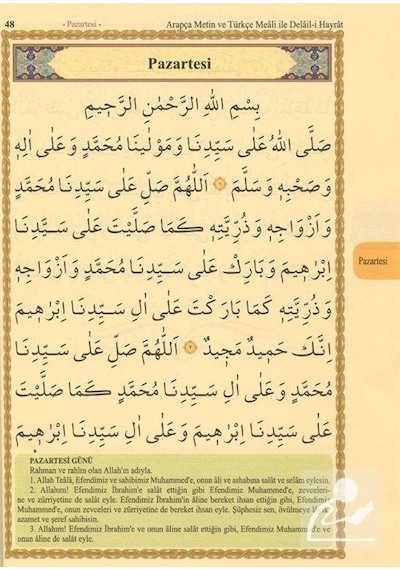 48 - Pazartesi - Arapça Metin ve Türkçe Meâli ile Delâil-i Hayrât
Pazartesi
بِسْمِ اللّٰهِ الرَّحْمٰنِ الرَّحِيمِ
صَلَّى اللّٰهُ عَلٰى سَيِّدِنَا وَمَوْلٰينَا مُحَمَّدٍ وَعَلٰى اٰلِهٖ
وَصَحْبِهٖ وَسَلَّمَ ١ اَللّٰهُمَّ صَلِّ عَلٰى سَيِّدِنَا مُحَمَّدٍ
وَاَزْوَاجِهٖ وَذُرِّيَّتِهٖ كَمَا صَلَّيْتَ عَلٰى سَيِّدِنَا
اِبْرٰهِيمَ وَبَارِكْ عَلٰى سَيِّدِنَا مُحَمَّدٍ وَاَزْوَاجِهٖ
وَذُرِّيَّتِهٖ كَمَا بَارَكْتَ عَلٰى اٰلِ سَيِّدِنَا اِبْرٰهِيمَ
اِنَّكَ حَمِيدٌ مَجِيدٌ ٢ اَللّٰهُمَّ صَلِّ عَلٰى سَيِّدِنَا
مُحَمَّدٍ وَعَلٰى اٰلِ سَيِّدِنَا مُحَمَّدٍ كَمَا صَلَّيْتَ
عَلٰى سَيِّدِنَا اِبْرٰهِيمَ وَعَلٰى اٰلِ سَيِّدِنَا اِبْرٰهِيمَ
Pazartesi
PAZARTESİ GÜNÜ
Rahman ve rahîm olan Allah'ın adıyla.
1. Allah Teâlâ, Efendimiz ve sahibimiz Muhammed'e, onun âli ve ashabına salât ve selâm eylesin.
2. Allahım! Efendimiz İbrahim'e salât ettiğin gibi Efendimiz Muhammed'e, zevceleri-
ne ve zürriyetine de salât eyle. Efendimiz İbrahim'in âline bereket ihsan ettiğin gibi, Efendimiz
Muhammed'e, onun zevceleri ve zürriyetine de bereket ihsan eyle. Şüphesiz sen, övülmeye
azamet ve şeref sahibisin.
3. Allahım! Efendimiz İbrahim'e ve onun âline salât ettiğin gibi, Efendimiz Muhammed'e ve
onun âline de salât eyle.